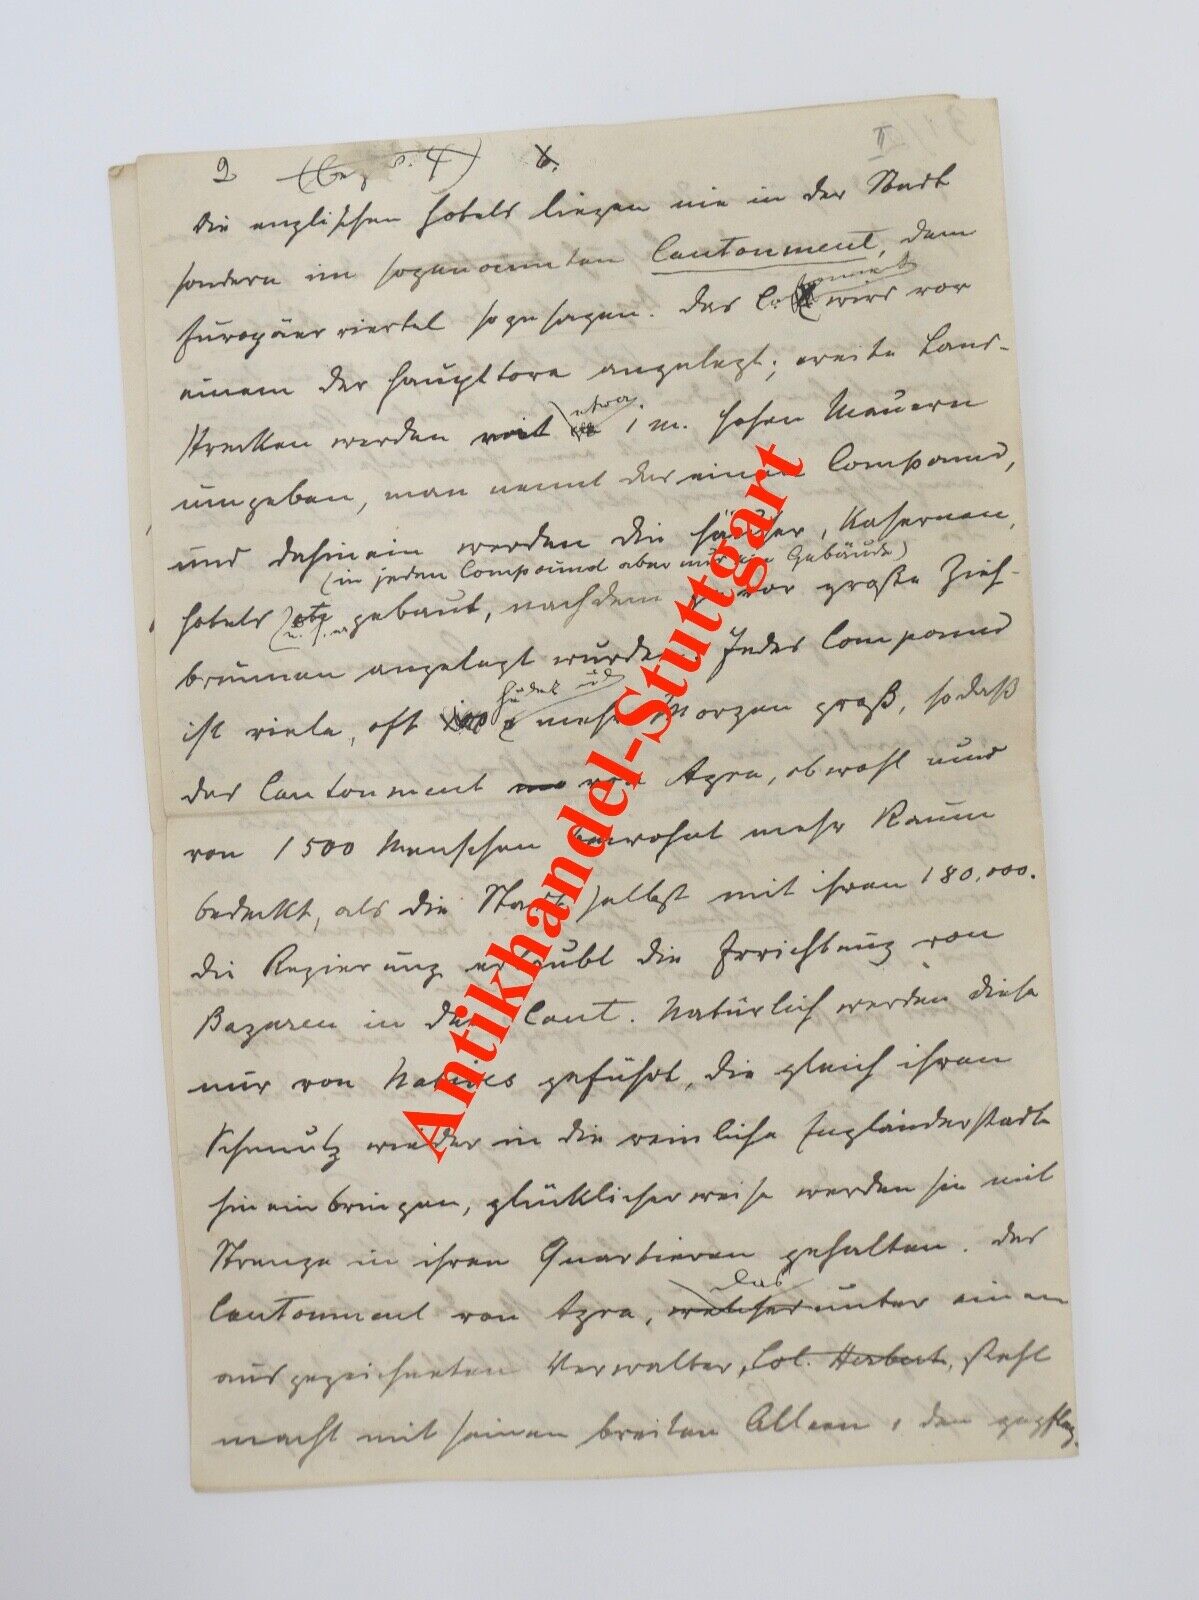 2 (bez S. 4) 6. II
Die englischen Hotels liegen nie in der Stadt
sondern im sogenannten Cantonment, dem
Europäerviertel sozusagen. Das Cantonment wird vor
einem der Haupttore angelegt; weite Land-
strecken werden mit etwa 1 m. hohen Mauern
umgeben, man nennt das einen Compound,
und dahinein werden die Häuser, Kasernen,
(in jeden Compound aber nur ein Gebäude)
Hotels etz u.s.w. gebaut, nachdem zuvor große Zieh-
brunnen angelegt wurden. Jedes Compound
ist viele, oft 100 hundert und mehr Morgen groß, sodaß
das Cantonment von Agra, obwohl nur
von 1500 Menschen bewohnt mehr Raum
bedeckt, als die Stadt selbst mit ihren 180,000.
Die Regierung erlaubt die Errichtung von
Bazaren in den Cant. Natürlich werden diese
nur von Natives geführt, die gleich ihren
Schmutz wieder in die reinliche Engländerstadt
hineinbringen, glücklicherweise werden sie mit
Strenge in ihren Quartieren gehalten. Das
Cantonment von Agra, welches das unter einem
ausgezeichneten Verwalter, Col. Herbert, steht
macht mit seinen breiten Alleen, den gepfleg-
Antikhandel-Stuttgart